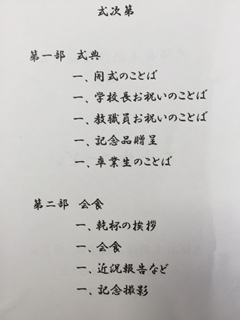 式次第
第一部 式典
一、開式のことば
一、学校長お祝いのことば
一、教職員お祝いのことば
一、記念品贈呈
一、卒業生のことば
第二部 会食
一、乾杯の挨拶
一、会食
一、近況報告など
一、記念撮影